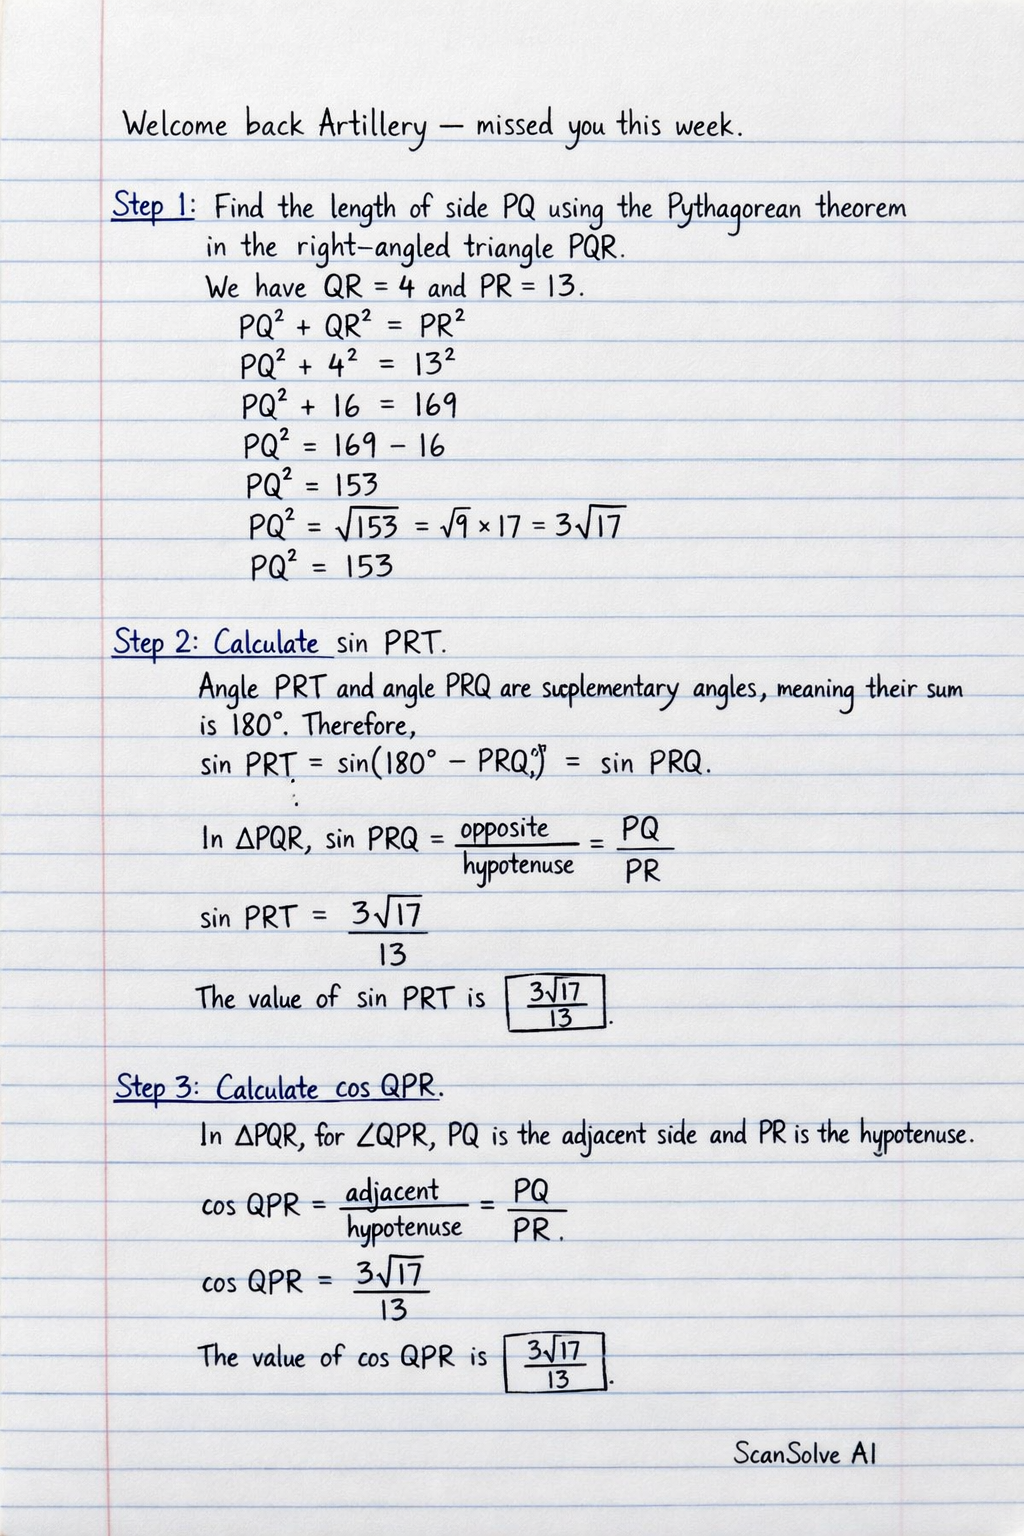 Welcome back Artillery — missed you this week.
Step 1: Find the length of side PQ using the Pythagorean theorem
in the right-angled triangle PQR.
We have QR = 4 and PR = 13.
PQ² + QR² = PR²
PQ² + 4² = 13²
PQ² + 16 = 169
PQ² = 169 − 16
PQ² = 153
PQ² = √153 = √9 × 17 = 3√17
PQ² = 153
Step 2: Calculate sin PRT.
Angle PRT and angle PRQ are supplementary angles, meaning their sum
is 180°. Therefore,
sin PRT = sin(180° − PRQ) = sin PRQ.
In ΔPQR, sin PRQ = opposite/hypotenuse = PQ/PR
sin PRT = 3√17/13
The value of sin PRT is 3√17/13.
Step 3: Calculate cos QPR.
In ΔPQR, for ∠QPR, PQ is the adjacent side and PR is the hypotenuse.
cos QPR = adjacent/hypotenuse = PQ/PR.
cos QPR = 3√17/13
The value of cos QPR is 3√17/13.
ScanSolve AI